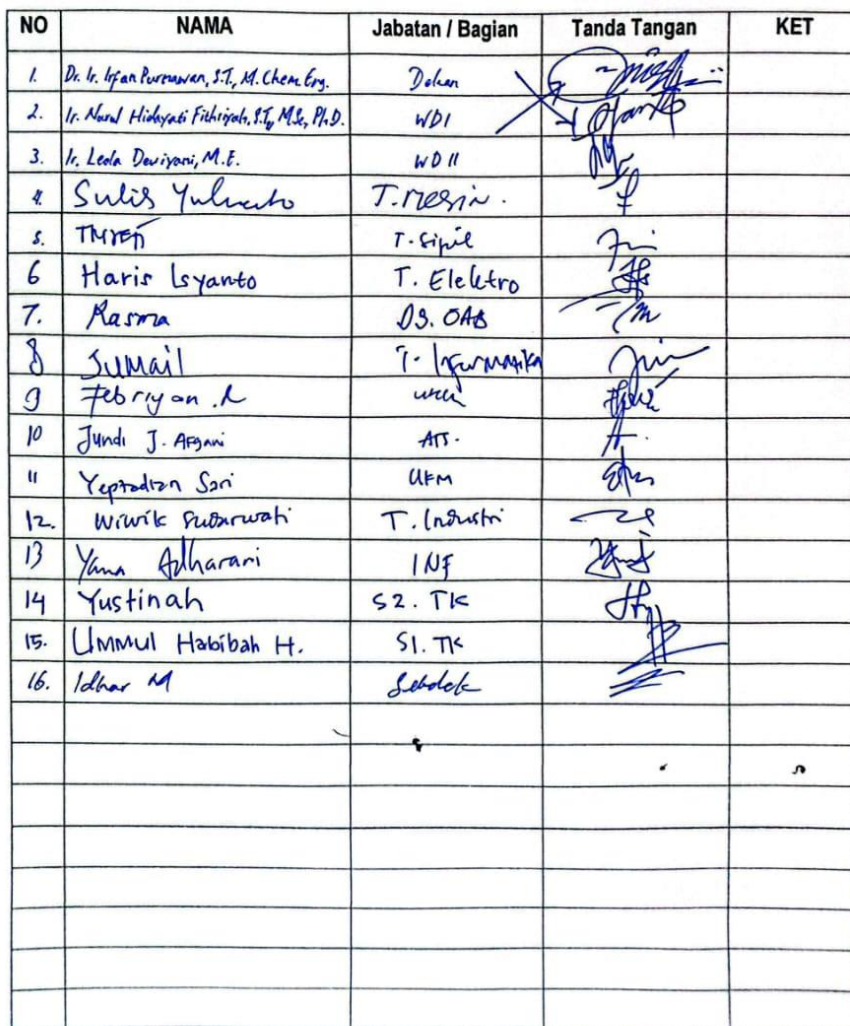 NO NAMA Jabatan / Bagian Tanda Tangan KET
1. Dr. Ir. Irfan Purnawan, S.T., M. Chem. Eng. Dekan
2. Ir. Nurul Hidayati Fithriyah, S.T., M.Sc., Ph.D. WD I
3. Ir. Leola Dewiyani, M.E. WD II
4. Sulis Yulianto T. Mesin.
5. T. Sipil
6 Haris Isyanto T. Elektro
7. Rasma D3. OAB
8 Jumail T. Informatika
9 Febriyan .R
10 Jundi J. Afgani ATS.
11 Yeptadian Sari UKM
12. Wiwik Sudarwati T. Industri
13 Yana Adharani INF
14 Yustinah S2. TK
15. Ummul Habibah H. S1. TK
16. Idhar M Sekdek